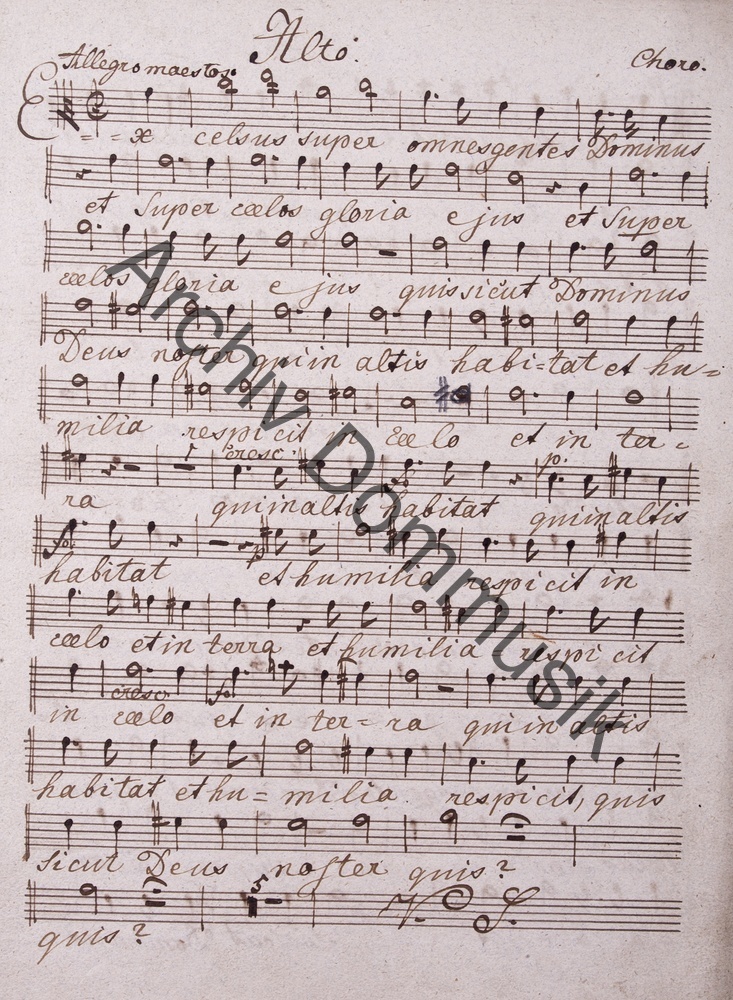 Alto:
Allegro maestoso. Choro.
E - - x celsus super omnes gentes Dominus
et Super cœlos gloria ejus et Super
cœlos gloria e jus quis sicut Dominus
Deus noster qui in altis habi=tat et hu=
milia respi cit in cœ lo et in ter -
cresc: p.
ra qui in altis habitat qui in altis
fo. p
habitat et humilia respi cit in
cœlo et in terra et humilia - respi cit
cresc. fo.
in cœlo et in ter = ra qui in altis
habitat et hu = milia. respicit, quis
sicut Deus noster quis?
V. S.
quis?
Archiv Dommusik